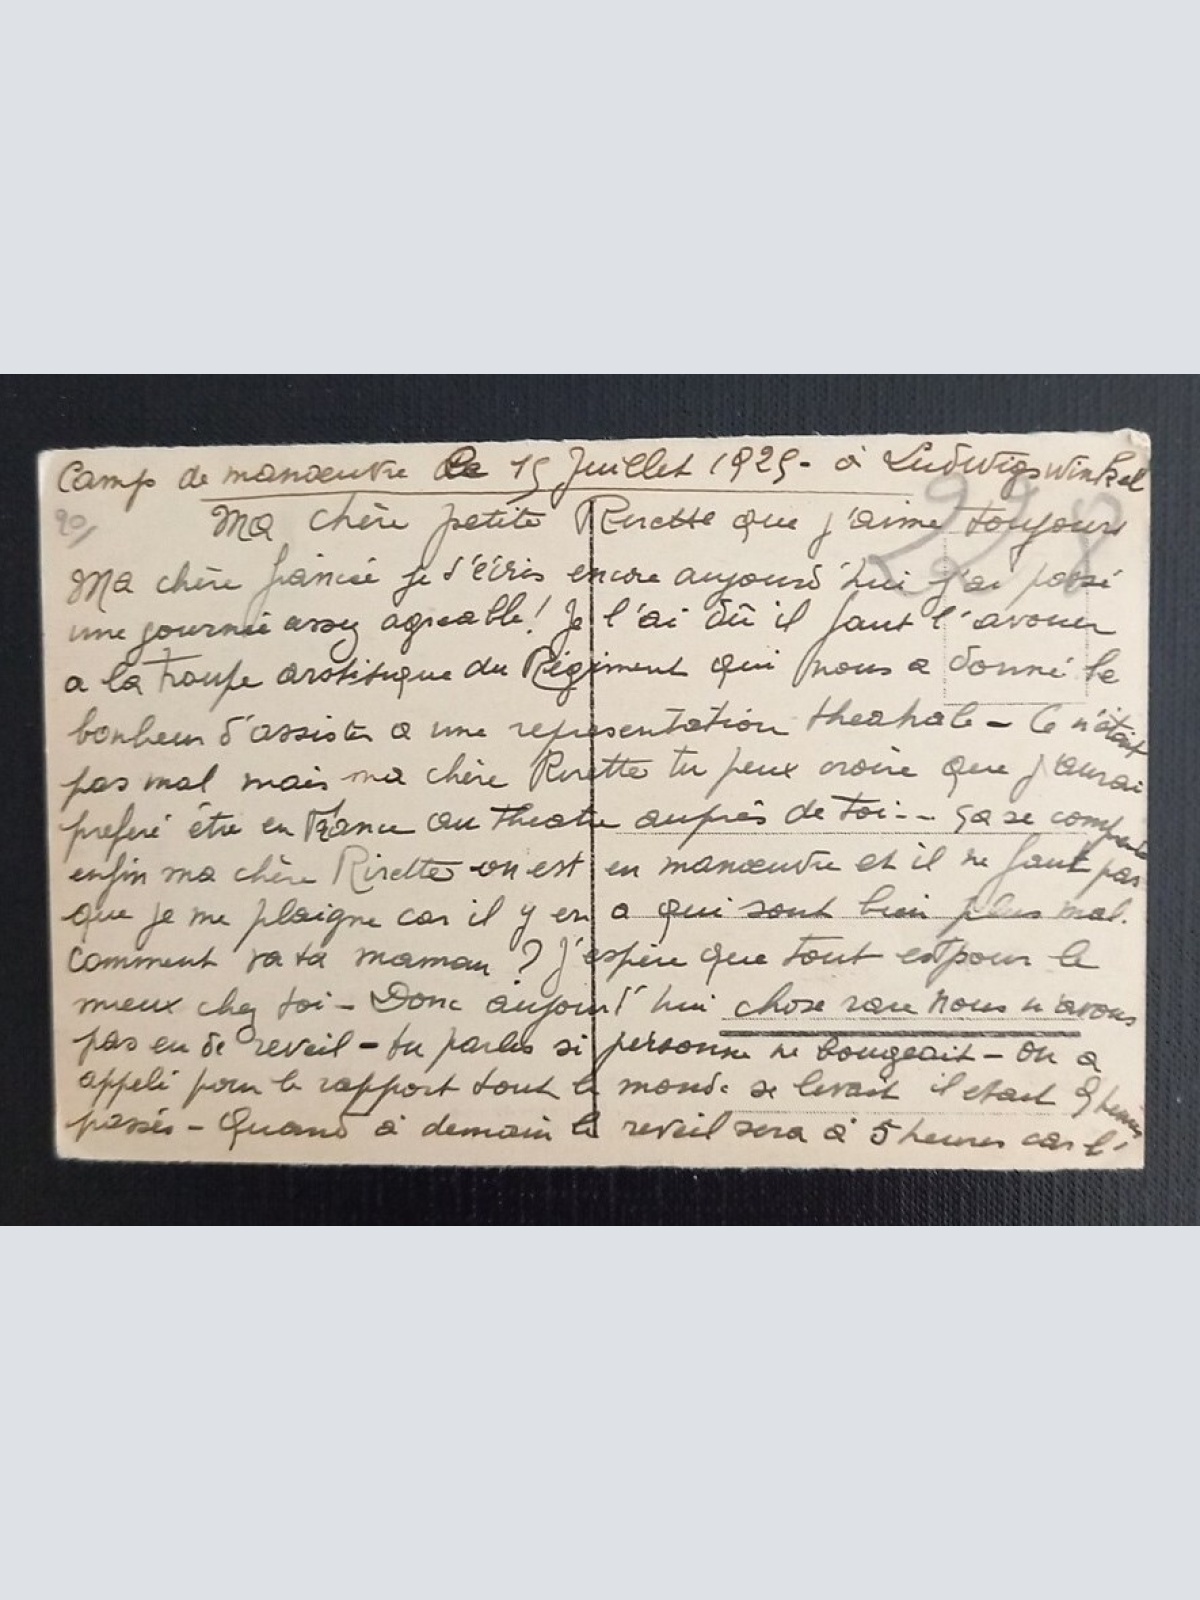 Camp de manœuvre le 15 Juillet 1925 - à Ludwigswinkel
20/
228
Ma chère petite Rirette que j'aime toujours
Ma chère fiancée je t'écris encore aujourd'hui j'ai passé
une journée assez agréable! Je l'ai dû il faut l'avouer
a la troupe artistique du Régiment qui nous a donné le
bonheur d'assister a une representation theatrale - Ce n'était
pas mal mais ma chère Rirette tu peux croire que j'aurai
preferé être en France au theatre auprès de toi -- ça se comprend
enfin ma chère Rirette on est en manœuvre et il ne faut pas
que je me plaigne car il y en a qui sont bien plus mal.
Comment va ta maman ? J'espère que tout est pour le
mieux chez toi - Donc aujourd'hui chose rare nous n'avons
pas eu de reveil - tu parles si personne ne bougeait - On a
appelé pour le rapport tout le monde se levait il etait 9 heures
passés - Quand à demain le reveil sera à 5 heures car l'